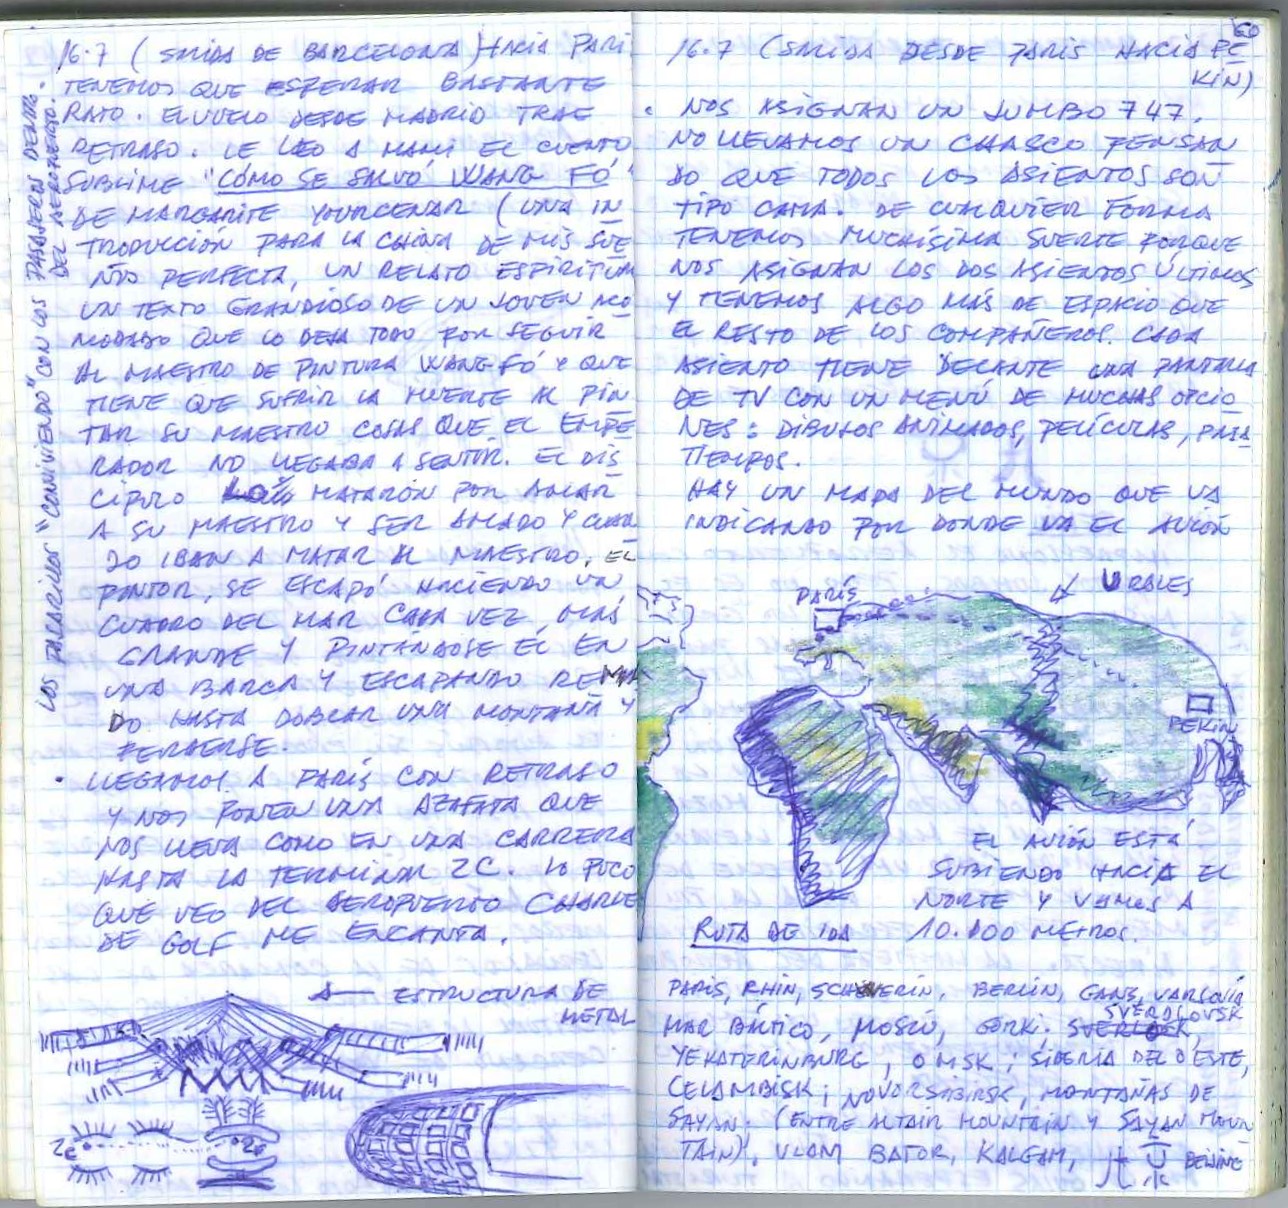 16.7 (SALIDA DE BARCELONA) HACIA PARI
TENEMOS QUE ESPERAR BASTANTE
RATO. EL VUELO DESDE MADRID TRAE
RETRASO. LE LEO A MAMI EL CUENTO
SUBLIME "CÓMO SE SALVÓ WANG FÓ"
DE MARGARITE YOURCENAR (UNA IN
TRODUCCIÓN PARA LA CHINA DE MIS SUE
ÑOS PERFECTA, UN RELATO ESPIRITUAL
UN TEXTO GRANDIOSO DE UN JOVEN ACO
MODADO QUE LO DEJA TODO POR SEGUIR
AL MAESTRO DE PINTURA WANG FÓ Y QUE
TIENE QUE SUFRIR LA MUERTE AL PIN
TAR SU MAESTRO COSAS QUE EL EMPE
RADOR NO LLEGABA A SENTIR. EL DIS
CÍPULO LO MATARÓN POR AMAR
A SU MAESTRO Y SER AMADO Y CUAN
DO IBAN A MATAR AL MAESTRO, EL
PINTOR, SE ESCAPÓ HACIENDO UN
CUADRO DEL MAR CADA VEZ MÁS
GRANDE Y PINTÁNDOSE ÉL EN
UNA BARCA Y ESCAPANDO REMAN
DO HASTA DOBLAR UNA MONTAÑA Y
PERDERSE.
• LLEGAMOS A PARÍS CON RETRASO
Y NOS PONEN UNA AZAFATA QUE
NOS LLEVA COMO EN UNA CARRERA
HASTA LA TERMINAL 2C. LO POCO
QUE VEO DEL AEROPUERTO CHARLE
DE GOLF ME ENCANTA.
LOS PAJARILLOS "CONVIVIENDO" CON LOS PASAJEROS DENTRO
DEL AEROPUERTO.
ESTRUCTURA DE
METAL
2e
2e
60
16.7 (SALIDA DESDE PARIS HACIA PE
KÍN)
• NOS ASIGNAN UN JUMBO 747.
NO LLEVAMOS UN CHASCO PENSAN
DO QUE TODOS LOS ASIENTOS SON
TIPO CAMA. DE CUALQUIER FORMA
TENEMOS MUCHÍSIMA SUERTE PORQUE
NOS ASIGNAN LOS DOS ASIENTOS ÚLTIMOS
Y TENEMOS ALGO MÁS DE ESPACIO QUE
EL RESTO DE LOS COMPAÑEROS. CADA
ASIENTO TIENE DELANTE UNA PANTALLA
DE TV CON UN MENÚ DE MUCHAS OPCIO
NES: DIBUJOS ANIMADOS, PELÍCULAS, PASA
TIEMPOS.
HAY UN MAPA DEL MUNDO QUE VA
INDICANDO POR DONDE VA EL AVIÓN
PARÍS
URALES
PEKIN
EL AVIÓN ESTÁ
SUBIENDO HACIA EL
NORTE Y VAMOS A
10.000 METROS.
RUTA DE IDA
PARIS, RHIN, SCHWERIN, BERLÍN, GANZ, VARSOVIA
MAR BÁLTICO, MOSCÚ, GORKI, SVERDLOVSK
YEKATERINBURG, OMSK; SIBERIA DEL OESTE,
CELIAMBISK; NOVORSIBIRSK, MONTAÑAS DE
SAYAN. (ENTRE ALTAIR MOUNTAIN Y SAYAN MOUN
TAIN), ULAM BATOR, KALGAM, 北京 BEIJING